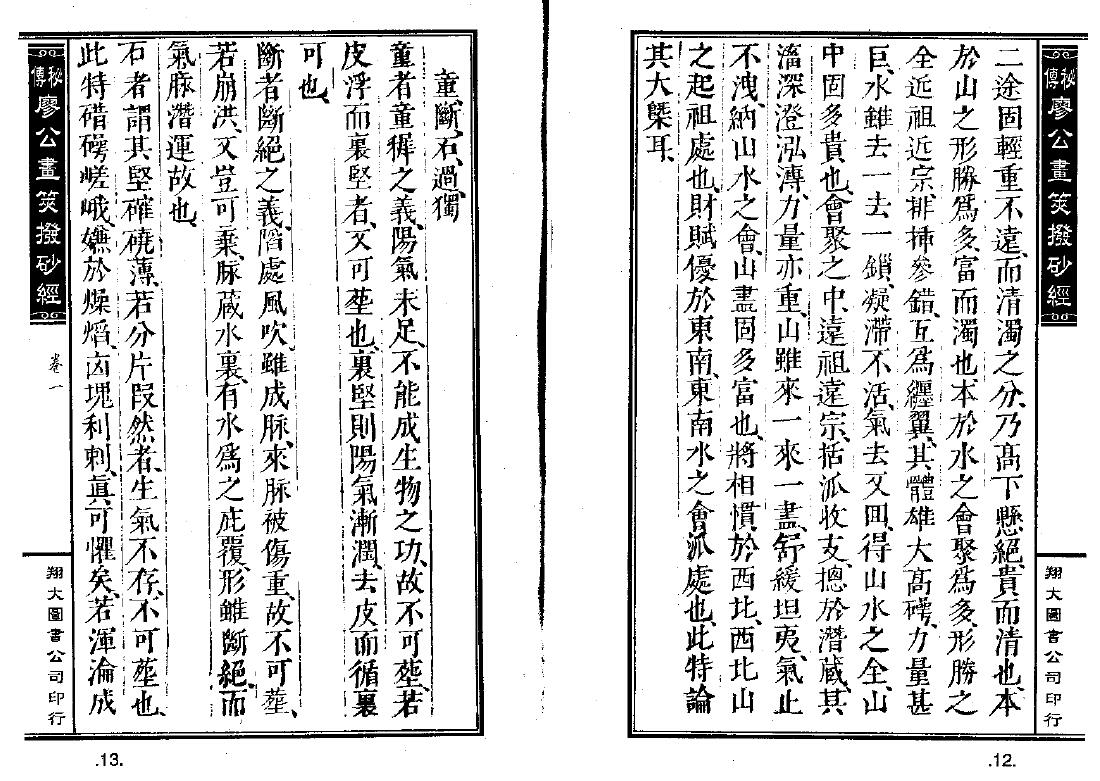 秘傳廖公畫筴撥砂經
二途固輕重不遠、而清濁之分、乃高下懸絕、貴而清也、本
於山之形勝爲多、富而濁也、本於水之會聚爲多、形勝之
全、近祖近宗、排揷參錯、互爲纒翼、其體雄大高礴、力量甚
巨、水雖去一去一鎖、凝滯不活、氣去又囬、得山水之全、山
中固多貴也、會聚之中、遠祖遠宗、括派收支、摠於潛蔵、其
滀深澄泓漙、力量亦重、山雖來一來一盡、舒緩坦夷、氣止
不洩、納山水之會、山盡固多富也、將相慣於西北、西北山
之起祖處也、財賦優於東南、東南水之會派處也、此特論
其大槩耳、
翔大圖書公司印行
.12.
童、斷、石、過、獨
童者童穉之義、陽氣未足、不能成生物之功、故不可塟、若
皮浮而裏堅者、又可塟也、裏堅則陽氣漸潤、去皮而循裏
可也、
斷者斷絕之義、䧟處風吹、雖成脉、來脉被傷重、故不可塟、
若崩洪、又豈可棄、脉蔵水裏、有水爲之庇覆、形雖斷絕、而
氣脉潛運故也、
石者、謂其堅確磽薄、若分片叚然者、生氣不存、不可塟也、
此特碏礴嵯峨、嫌於燥熖、凶塊利刺、眞可懼矣、若渾淪成
秘傳廖公畫筴撥砂經
卷一
翔大圖書公司印行
.13.